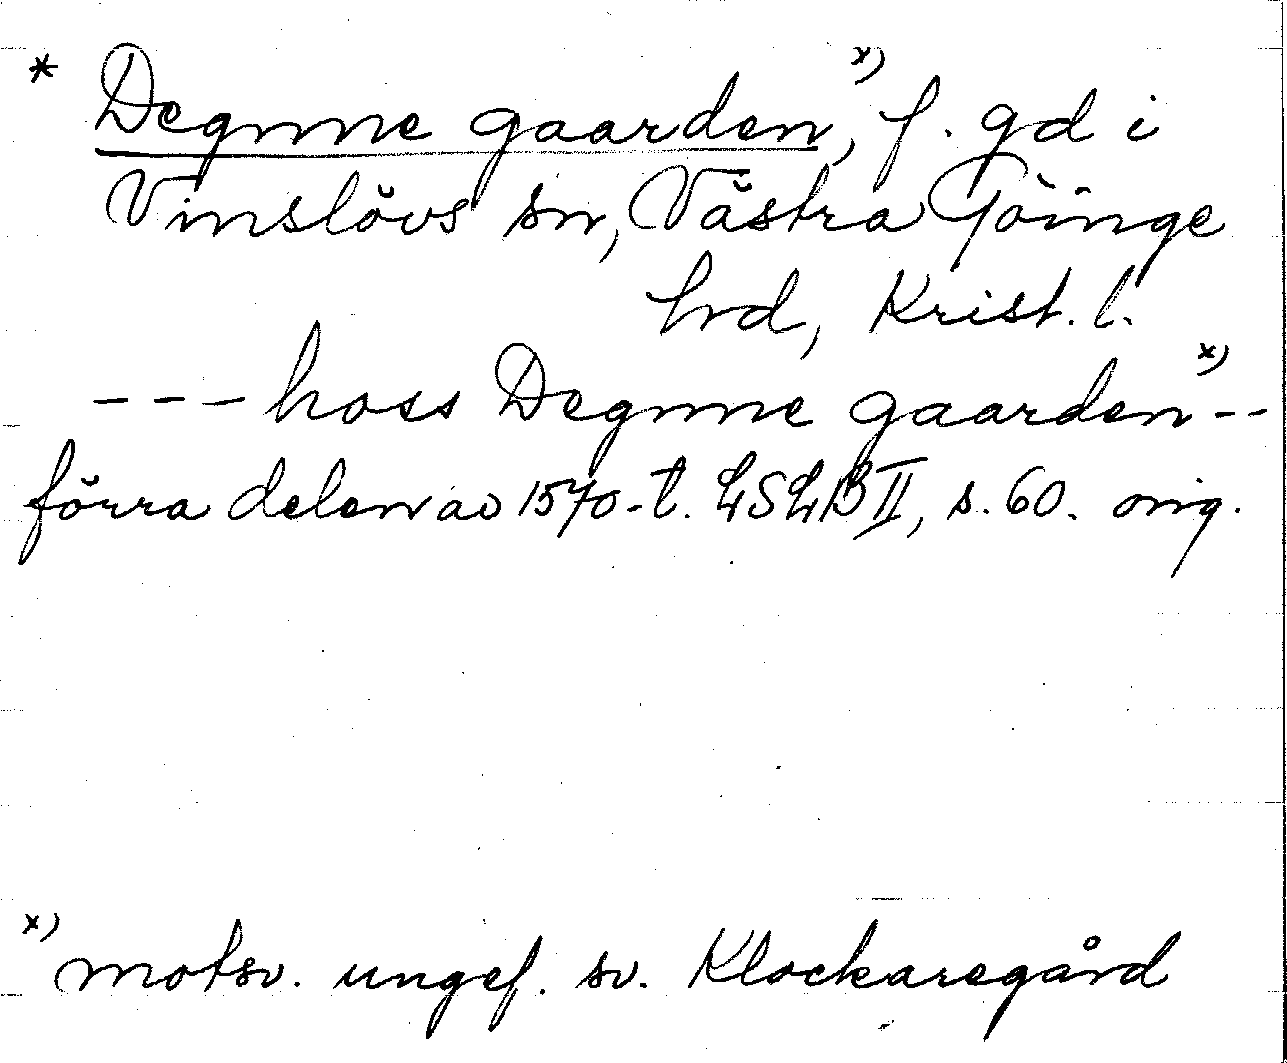 * Degnne gaarden x), f. gd i
Vinslövs sn, Västra Göinge
hrd, Krist. l.
--- hoss Degnne gaarden x) --
förra delen av 1570-t. LSLB II, s. 60. orig.
x) motsv. ungef. sv. Klockaregård